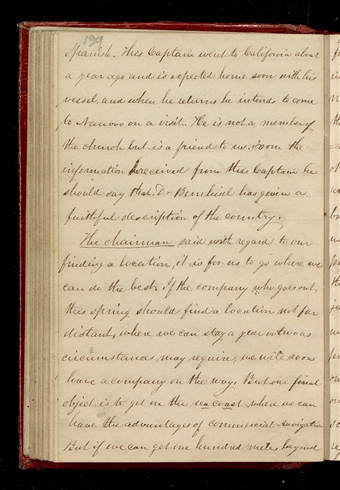 129
Spanish. This Captain went to California about
a year ago and is expected home soon with his
vessel, and when he returns he intends to come
to Nauvoo on a visit. He is not a member of
the church but is a friend to us. From the
information received from this Captain he
should say that Dr. Bernhisel has given a
faithful description of the country.
The chairman said with regard to our
finding a location, it is for us to go where we
can do the best. If the company who goes out
this spring should find a location not far
distant, where we can stay a year or two as
circumstances may require, we will soon
have a company on the way. But our final
object is to get on the sea coast where we can
have the advantages of commercial navigation
But if we can get one hundred miles beyond